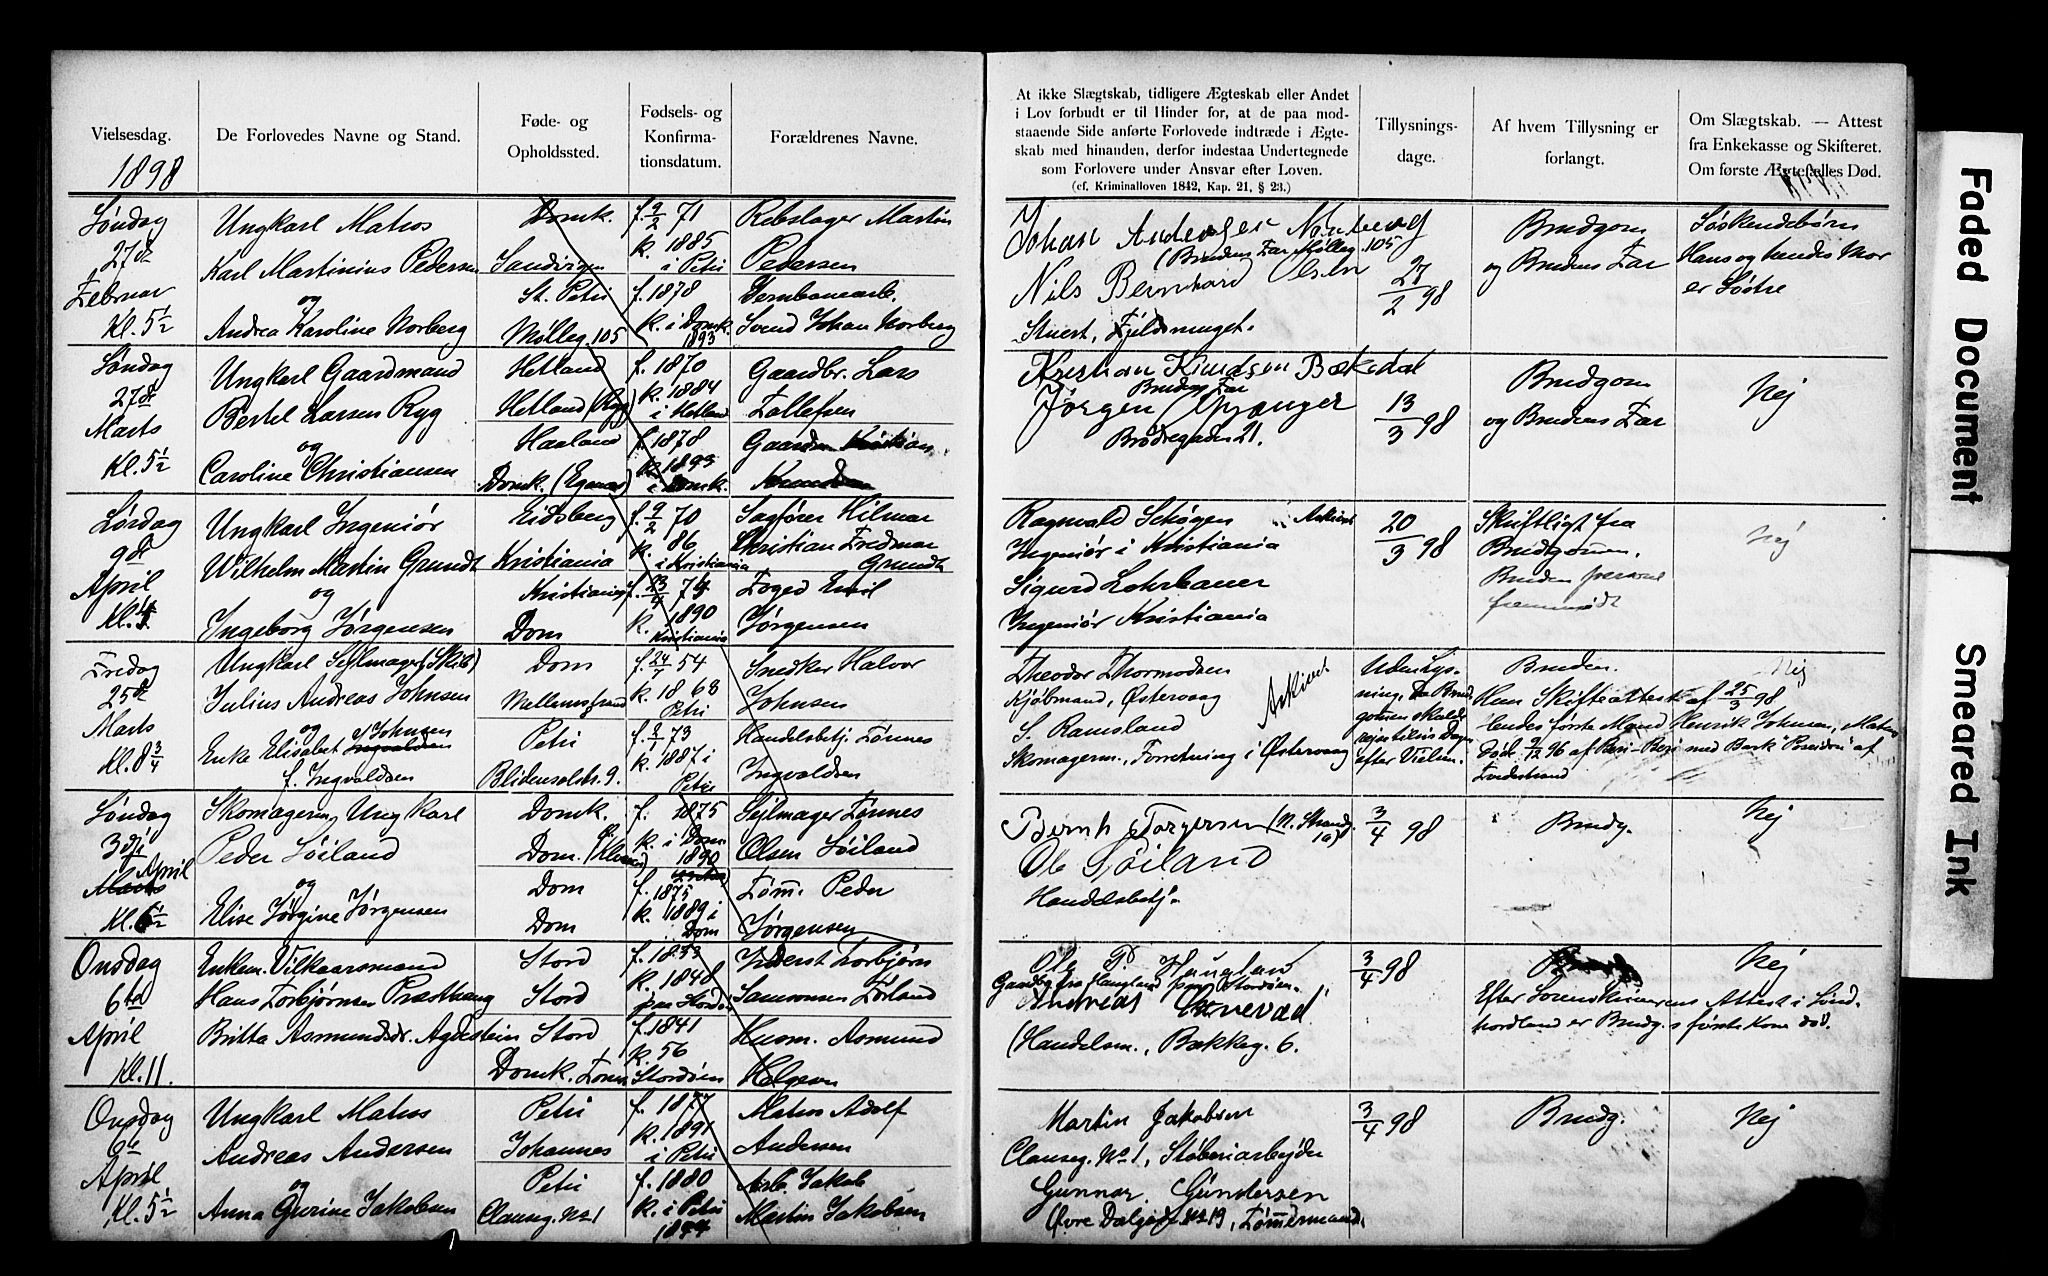 Vielsesdag.
1898
De Forlovedes Navne og Stand.
Føde- og
Opholdssted.
Fødsels- og
Konfirma-
tionsdatum.
Forældrenes Navne.
Søndag
27de
Februar
Kl. 5½
Ungkarl Matros
Karl Martinius Pedersen
og
Andrea Karoline Norberg
Domk.
Sandvigen
St. Petri
Mølleg. 105
f. 9/2 71
k. 1885
i Petri
f. 1878
k. i Domk.
1893
Rebslager Martin
Pedersen
Jernbanearb.
Svend Johan Norberg
Søndag
27de
Marts
Kl. 5½
Ungkarl Gaardmand
Bertel Larsen Ryg
og
Caroline Christiansen
Hetland
Hetland (Ryg)
Haaland
Domk. (Eganes)
f. 1870
k. 1884
i Hetland
f. 1878
k. 1893
i Domk.
Gaardbr. Lars
Tollefsen
Lørdag
9de
April
Kl. 4
Ungkarl Ingeniør
Wilhelm Martin Grundt
og
Ingeborg Jørgensen
Eidsberg
Kristiania
Kristiania
Dom
f. 9/2 70
k. 86
i Kristiania
f. 23/4 75
k. 1890
Kristiania
Sagfører Hilmar
Christian Fredmar
Grundt
Foged Emil
Jørgensen
Fredag
25de
Marts
Kl. 8¾
Ungkarl Sejlmager (Skib)
Julius Andreas Johnsen
og
Enke Elisabet Johnsen
f. Ingvaldsen
Dom
Mellemstrand
Petri
Blidensolstr. 9.
f. 24/7 54
k. 1868
Petri
f. 9/1 73
k. 1887 i
Petri
Snedker Halvor
Johnsen
Handelsbetj. Tønnes
Ingvaldsen
Søndag
3die
April
Marts
Kl. 6½
Skomagersv. Ungkarl
Peder Søiland
og
Elise Jørgine Jørgensen
Domk.
Dom.
Dom
Dom
f. 1875
k. i Dom
1890
f. 1875
k. 1889 i
Dom
Sejlmager Tønnes
Olsen Søiland
Tømm. Peder
Jørgensen
Onsdag
6te
April
Kl. 11.
Enkem. Vilkaarsmand
Hans Torbjørnsen Præsthaug
Britta Asmundsdr. Agdestein
Stord
Stord
Stord
Domk.
f. 1833
k. 1848
paa Stordøen
f. 1841
k. 56
Stordøen
Inderst Torbjørn
Samsonsen Førland
Husm. Asmund
Helgesen
Onsdag
6te
April
Kl. 5½
Ungkarl Matros
Andreas Andersen
og
Anna Gurine Jakobsen
Petri
Johannes
Petri
Clauseg. No 1
f. 1877
k. 1891
i Petri
f. 1880
k. i Petri
1894
Matros Adolf
Andersen
Arb. Jakob
Martin Jakobsen
At ikke Slægtskab, tidligere Ægteskab eller Andet
i Lov forbudt er til Hinder for, at de paa mod-
staaende Side anførte Forlovede indtræde i Ægte-
skab med hinanden, derfor indestaa Undertegnede
som Forlovere under Ansvar efter Loven.
(cf. Kriminalloven 1842, Kap. 21, § 23.)
Tillysnings-
dage.
Af hvem Tillysning er
forlangt.
Om Slægtskab. — Attest
fra Enkekasse og Skifteret.
Om første Ægtefælles Død.
Johan Andreas Norberg
(Brudens Far Mølleg. 105
Nils Bernhard Olsen
Stuert, Fjeldsmuget.
27/2 98
Brudgom
og Brudens Far
Søskendebørn
Hans og hendes Mor
er Søstre
Kristian Knudsen Bækedal
Brudens Far
Jørgen Opzanger
Brødregaden 21.
13/3 98
Brudgom
og Brudens Far
Nej
Ragnvald Schøgen
Ingeniør i Kristiania
Sigurd Lohrbauer
Ingeniør Kristiania
Arkivet
20/3 98
Skriftligt fra
Brudgommen.
Bruden personl
fremmødt
Nej
Theodor Thormodsen
Kjøbmand, Østervaag
S. Ramsland
Skomagerm., Forretning i Østervaag
Arkivet
Uden Lys-
ning, da Brud-
gommen skulde
rejse tilsøs Dagen
efter Vielsen.
Bruden.
Hun Skifteattest af 25/3 98
Hendes første Mand Henrik Johnsen, Matros
Død 7/12 96 af Beri-Beri med Bark "Poseidon" af
Nej
Bernh Torgersen (N. Strandg.
10)
Ole Søiland
Handelsbetj.
3/4 98
Brudg.
Nej
Ole P. Haugland
Gaardbr. fra Haugland paa Stordøen.
Andreas Tarnevad.
(Handelsm., Bækkeg. 6.
3/4 98
Efter Sorenskriverens Attest i Sønd-
hordland er Brudg.s første Kone død.
Nej
Martin Jakobsen
Clauseg. No 1, Støberiarbejder
Gunnar Gundersen
Øvre Dalgade No 19, Tømmermand.
3/4 98
Brudg.
Nej
Faded Document
Smeared Ink